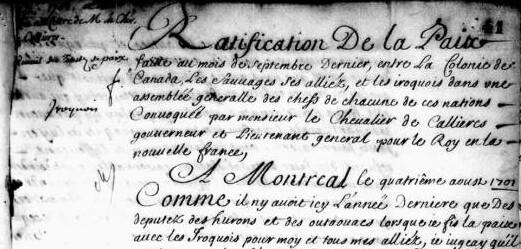 41
Ratification De la Paix
faitte au mois de septembre Dernier, entre La Colonie de
Canada, Les Sauvages ses alliez, et les iroquois dans une
assemblée generalle des chefs de chacune de ces nations
Convoquée par monsieur le Chevalier de Callieres
gouverneur et Lieutenant general pour le Roy en la
nouvelle france,
A Montreal le quatrième aoust 1701
Comme il ny avoit icy L'année Derniere que Des
deputez des hurons et des outaouacs lorsque ie fis la paix
avec les Iroquois pour moy et tous mes alliez, ie jugeay qu'il
de M. de
Callieres
Iroquois